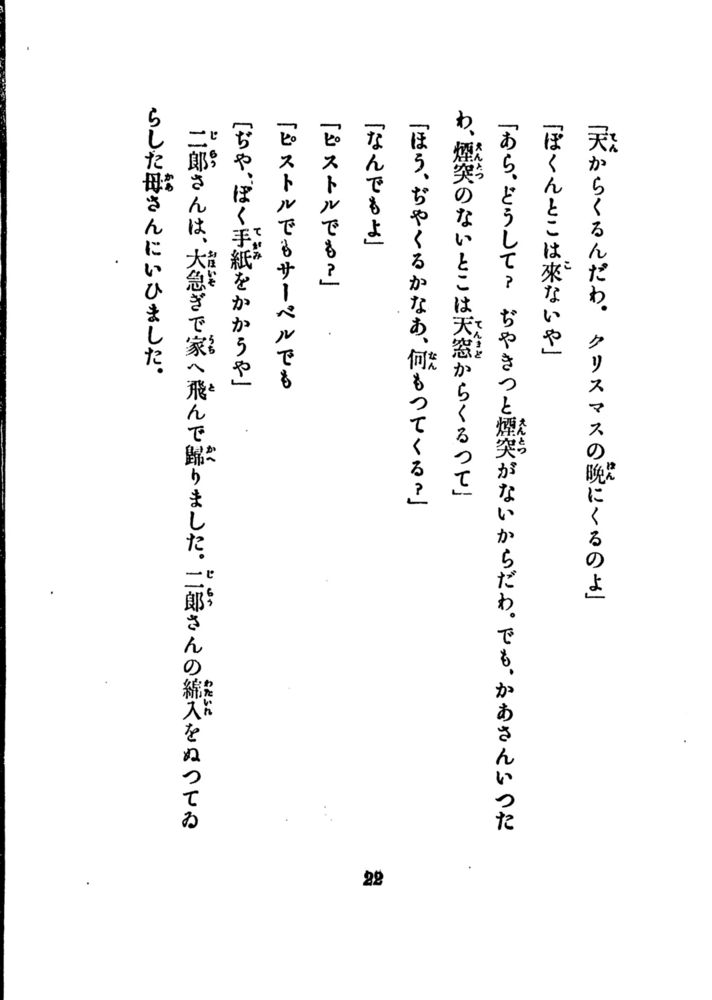 「天からくるんだわ。 クリスマスの晩にくるのよ」
「ぼくんとこは來ないや」
「あら、どうして? ぢやきつと煙突がないからだわ。でも、かあさんいつた
わ、煙突のないとこは天窓からくるつて」
「ほう、ぢやくるかなあ、何もつてくる?」
「なんでもよ」
「ピストルでも?」
「ピストルでもサーベルでも
「ぢや、ぼく手紙をかかうや」
二郎さんは、大急ぎで家へ飛んで歸りました。二郎さんの綿入をぬつてゐ
らした母さんにいひました。
22